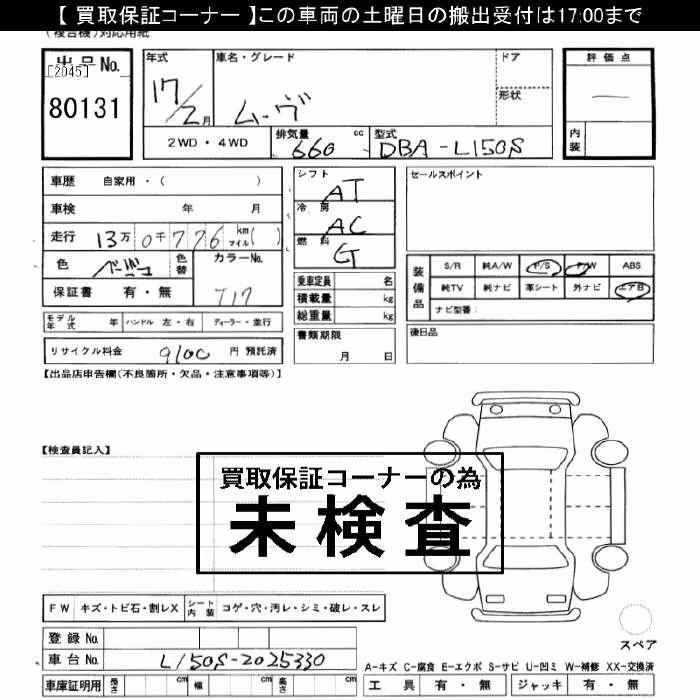 【 買取保証コーナー 】この車両の土曜日の搬出受付は17:00まで
(複合機)対応用紙
出品No.
[2045]
80131
年式
17/2月
車名・グレード
ムーヴ
ドア
形状
評価点
—
内装
2WD・4WD
排気量
660
cc
型式
DBA-L150S
車歴 自家用・( )
車検 年 月
走行 13万0千776 km マイル( )
色
ベージュ
色替
カラーNo.
T17
保証書 有・無
シフト
AT
冷房
AC
燃料
G
乗車定員 名
積載量 kg
総重量 kg
書類期限
月 日
セールスポイント
装備品
S/R 純A/W P/S P/W ABS
純TV 純ナビ 革シート 外ナビ エアB
ナビ型番:
後日品
モデル年式 年 ハンドル 左・右 ディーラー・並行
リサイクル料金 9100 円 預託済
【出品店申告欄(不良箇所・欠品・注意事項等)】
【検査員記入】
買取保証コーナーの為
未検査
FW キズ・トビ石・割レX シート内装 コゲ・穴・汚レ・シミ・破レ・スレ
登録No.
車台No. L150S-2025330
車庫証明用 長さ cm 幅 cm 高さ cm
スペア
A-キズ C-腐食 E-エクボ S-サビ U-凹ミ W-補修 XX-交換済
工具 有・無 ジャッキ 有・無